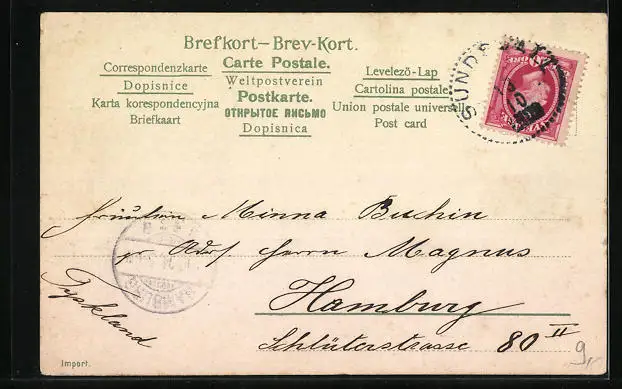 Brefkort–Brev-Kort.
Carte Postale.
Correspondenzkarte
Weltpostverein
Levelező-Lap
Dopisnice
Postkarte.
Cartolina postale
Karta korespondencyjna
ОТКРЫТОЕ ПИСЬМО
Union postale universelle
Briefkaart
Dopisnica
Post card
SUNDSVALL
Fräulein Minna Buchin
pr Adr. Herrn Magnus
Hamburg
Tyskland
Schlüterstrasse 80 II
Import.
9,